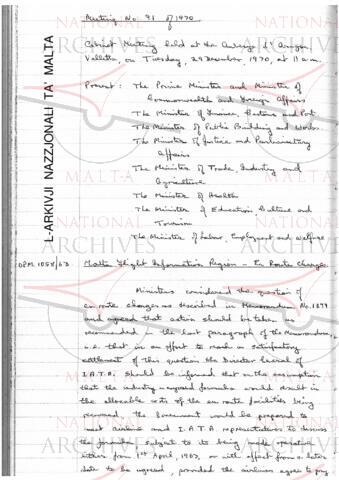 Meeting No. 31 of 1970
Cabinet Meeting held at the Auberge d'Aragon
Valletta, on Tuesday, 29 December, 1970, at 11 a.m.
Present : The Prime Minister and Minister of
Commonwealth and Foreign Affairs
The Minister of Finance, Customs and Port
The Minister of Public Building and Works
The Minister of Justice and Parliamentary
Affairs
The Minister of Trade, Industry and
Agriculture
The Minister of Health
The Minister of Education, Culture and
Tourism
The Minister of Labour, Employment and Welfare
OPM. 1058/63 Malta Flight Information Region - En Route Charges
Ministers considered the question of
en route charges as described in Memorandum No. 1879
and agreed that action should be taken as
recommended in the last paragraph of the Memorandum,
i.e. that in an effort to reach a satisfactory
settlement of this question the Director General of
I.A.T.A. should be informed that on the assumption
that the industry proposed formula would result in
the allocable costs of the en route facilities being
recovered, the Government would be prepared to
meet airline and I.A.T.A. representatives to discuss
the formula subject to its being made operative
either from 1st April, 1967, or with effect from a later
date to be agreed, provided the airlines agree to pay
L-ARKIVJI NAZZJONALI TA' MALTA
NATIONAL
ARCHIVES
MALTA